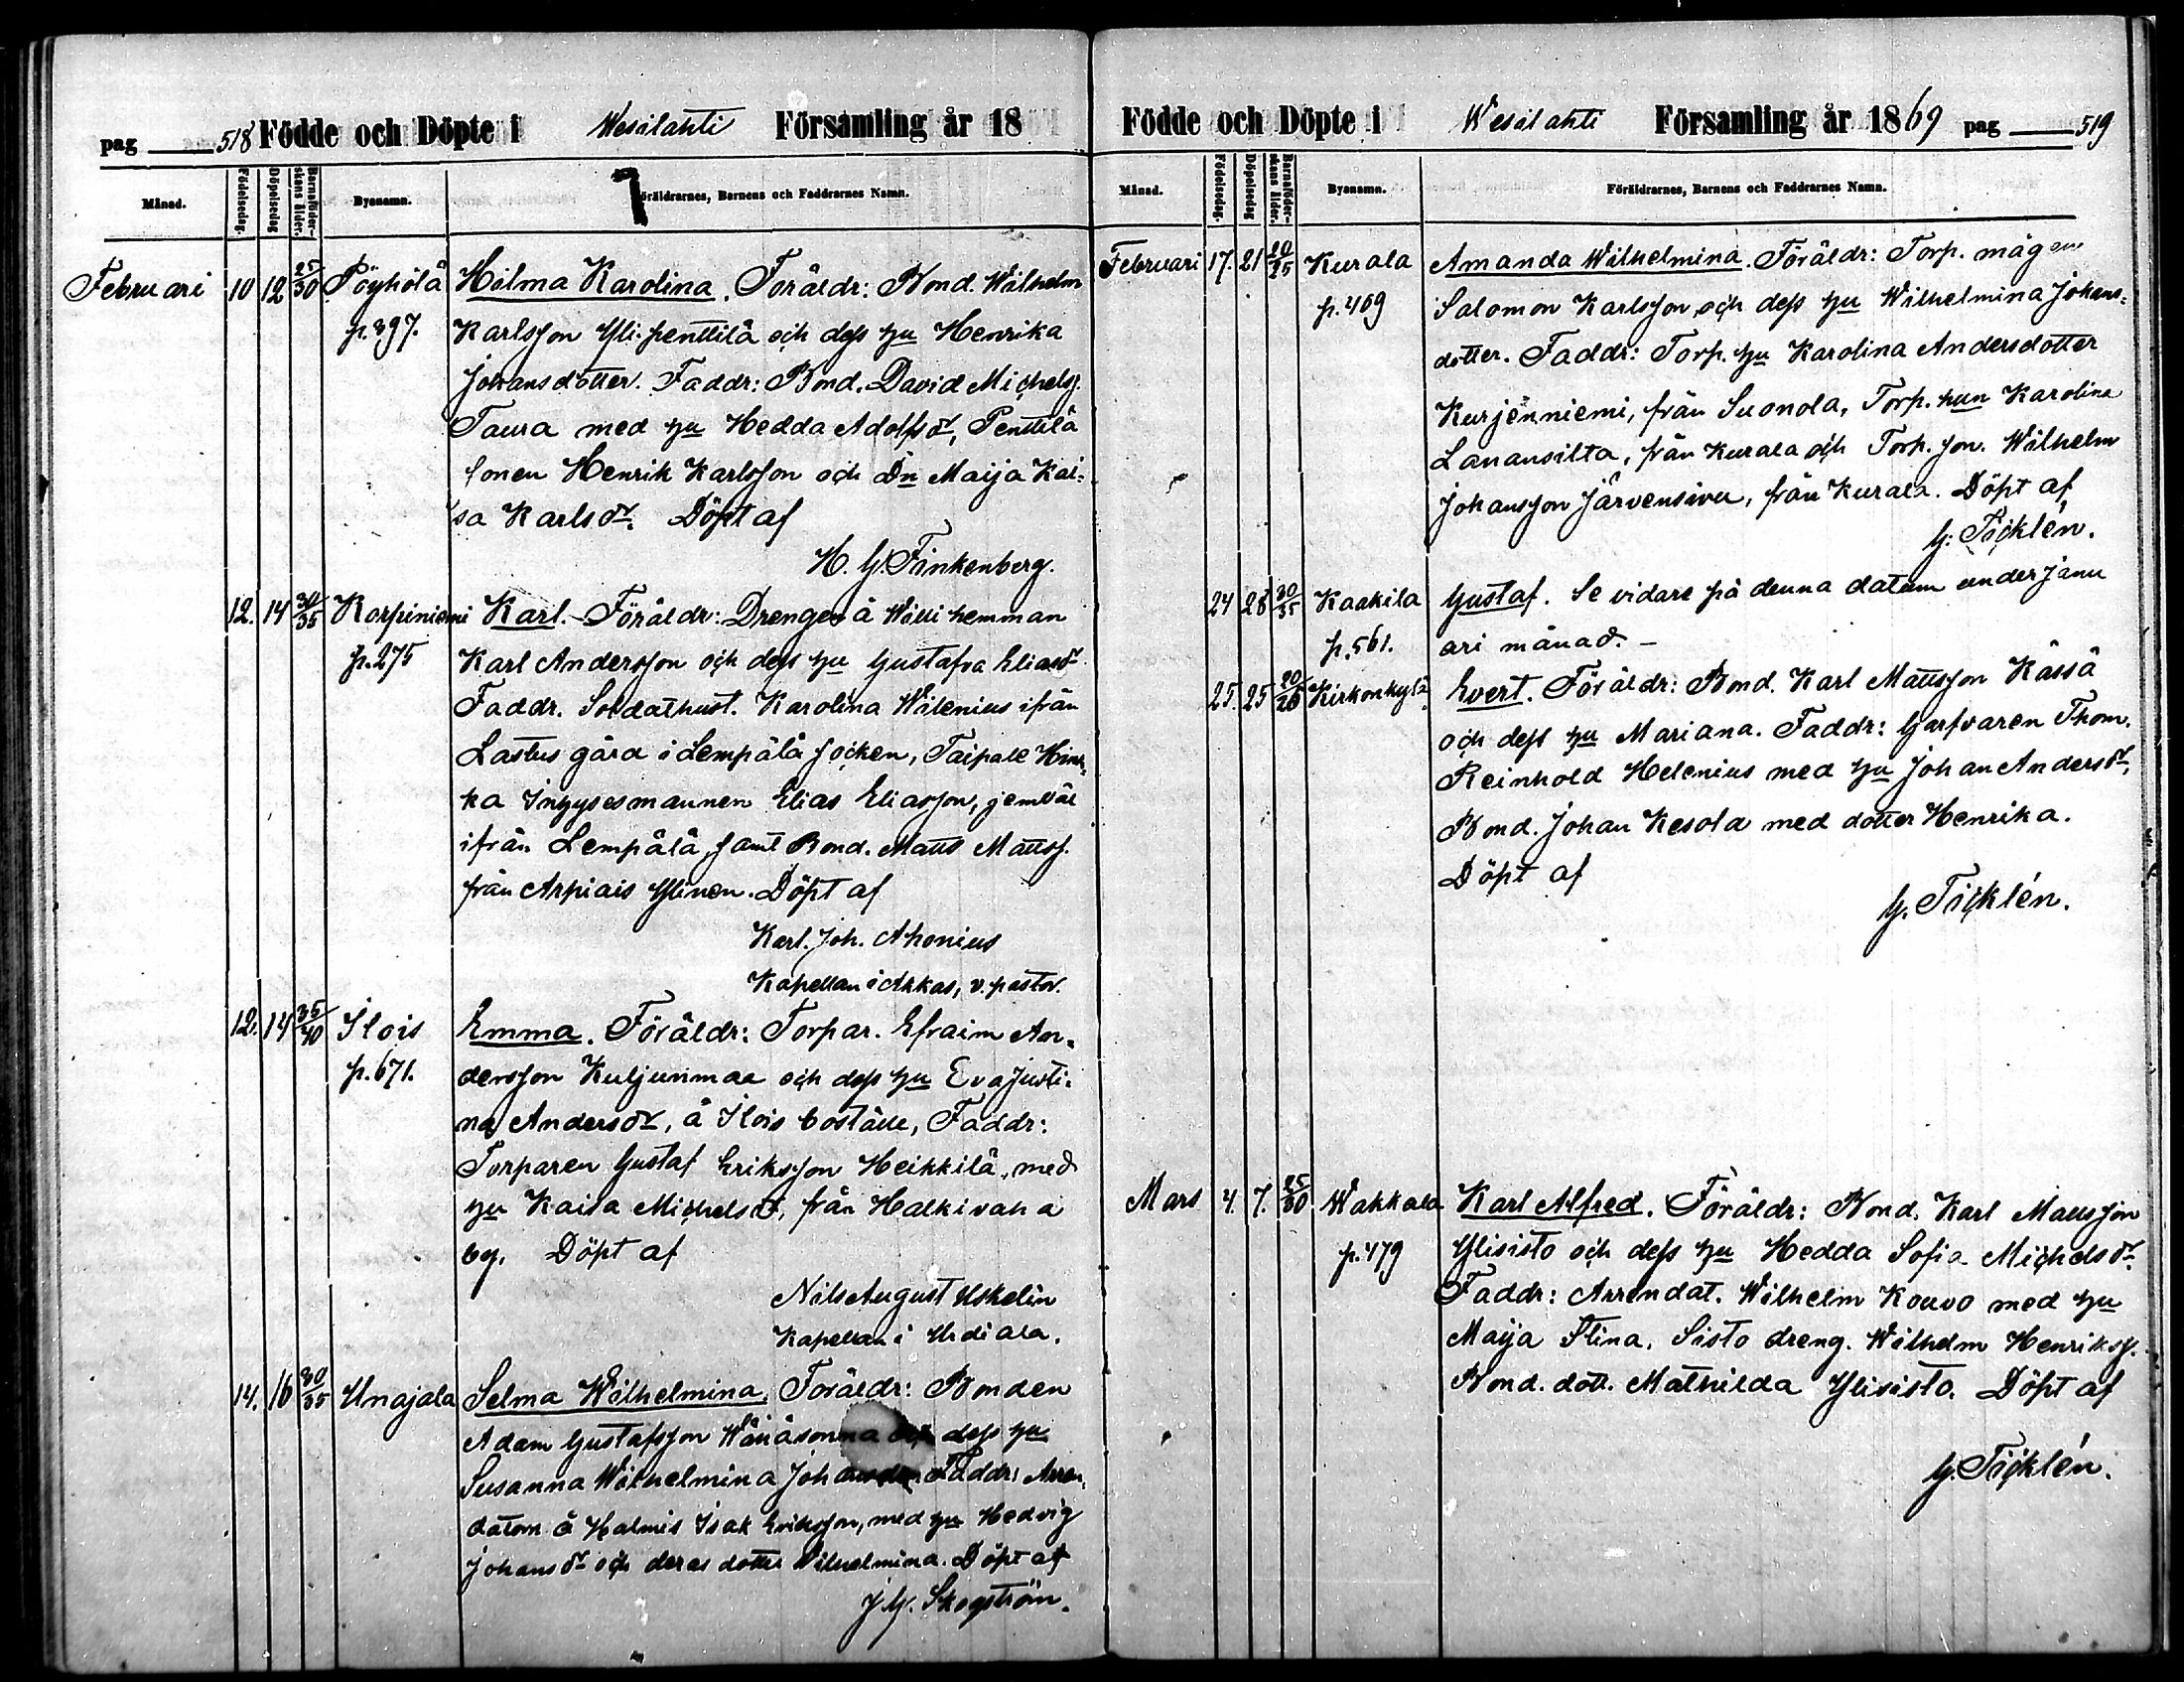 pag 518 Födde och Döpte i Wesilahti Församling år 18
Månad. Födelsedag. Döpelsedag Barnaföder-skans ålder. Bysnamn. Föräldrarnes, Barnens och Faddrarnes Namn.
Februari 10 12 25/30 Pöyhölä Hilma Karolina. Föräldr: Bond. Wilhelm
p. 397. Karlsson Yli-penttilä och dess hu Henrika
Johansdotter. Faddr: Bond. David Michelss.
Taura med hu Hedda Adolfsdr, Penttilä
sonen Henrik Karlsson och Dn Maija Kai-
sa Karlsdr. Döpt af
H. G. Finkenberg.
12. 14 30/35 Korpiniemi Karl. Föräldr: Drengen å Willi hemman
p. 275 Karl Andersson och dess hu Gustafva Eliasdr
Faddr. Soldathust. Karolina Wilenius ifrån
Lastus gård i Lempälä socken, Taipale
ka Inhysesmannen Elias Eliasson, jemväl
ifrån Lempälä, samt Bond. Matts Mattss.
från Arpiais Ylinen. Döpt af
Karl. Joh. Ahonius
Kapellan i Akkas, v. pastor.
12. 14 35/40 Ilois Emma. Föräldr: Torpar. Efraim An-
p. 671. dersson Kuljunmaa och dess hu Eva Justi-
na Andersdr, å Ilois boställe, Faddr:
Torparen Gustaf Eriksson Heikkilä, med
hu Kaisa Michelsdr, från Halkivaha
by. Döpt af
Nils August Uskelin
Kapellan i Urdiala.
14. 16 30/35 Unajala Selma Wilhelmina. Föräldr: Bonden
Adam Gustafsson och dess hu
Susanna Wilhelmina Johansdr. Faddr: Arren-
datorn å Halmis Isak Eriksson, med hu Hedvig
Johansdr och deras dotter Wilhelmina. Döpt af
J. G. Skogström.
Födde och Döpte i Wesilahti Församling år 1869 pag 519
Månad. Födelsedag. Döpelsedag Barnaföder-skans ålder. Bysnamn. Föräldrarnes, Barnens och Faddrarnes Namn.
Februari 17. 21 20/25 Kurala Amanda Wilhelmina. Föräldr: Torp. mågen
p. 409 Salomon Karlsson och dess hu Wilhelmina Johans-
dotter. Faddr: Torp. hu Karolina Andersdotter
Kurjenniemi, från Suonola, Torp. hun Karolina
Lanansilta, från Kurala och Torp. son. Wilhelm
Johansson Järvensivu, från Kurala. Döpt af
G. Ticklén.
24 28 30/35 Kaakila Gustaf. Se vidare på denna datum under Janu
p. 561. ari månad. –
25. 25 20/25 Kirkonkylä Evert. Föräldr: Bond. Karl Mattsson Kässä
och dess hu Mariana. Faddr: Garfvaren Thom.
Reinhold Helenius med hu Johan Andersdr,
Bond. Johan Kesola med dotter Henrika.
Döpt af
G. Ticklén.
Mars 4. 7. 25/30 Wakkala Karl Alfred. Föräldr: Bond. Karl Mattsson
p. 479 Ylisisto och dess hu Hedda Sofia Michelsdr.
Faddr: Arrendat. Wilhelm Kouvo med hu
Maija Stina, Sisto dreng. Wilhelm Henrikss.
Bond. dott. Mathilda Ylisisto. Döpt af
G. Ticklén.